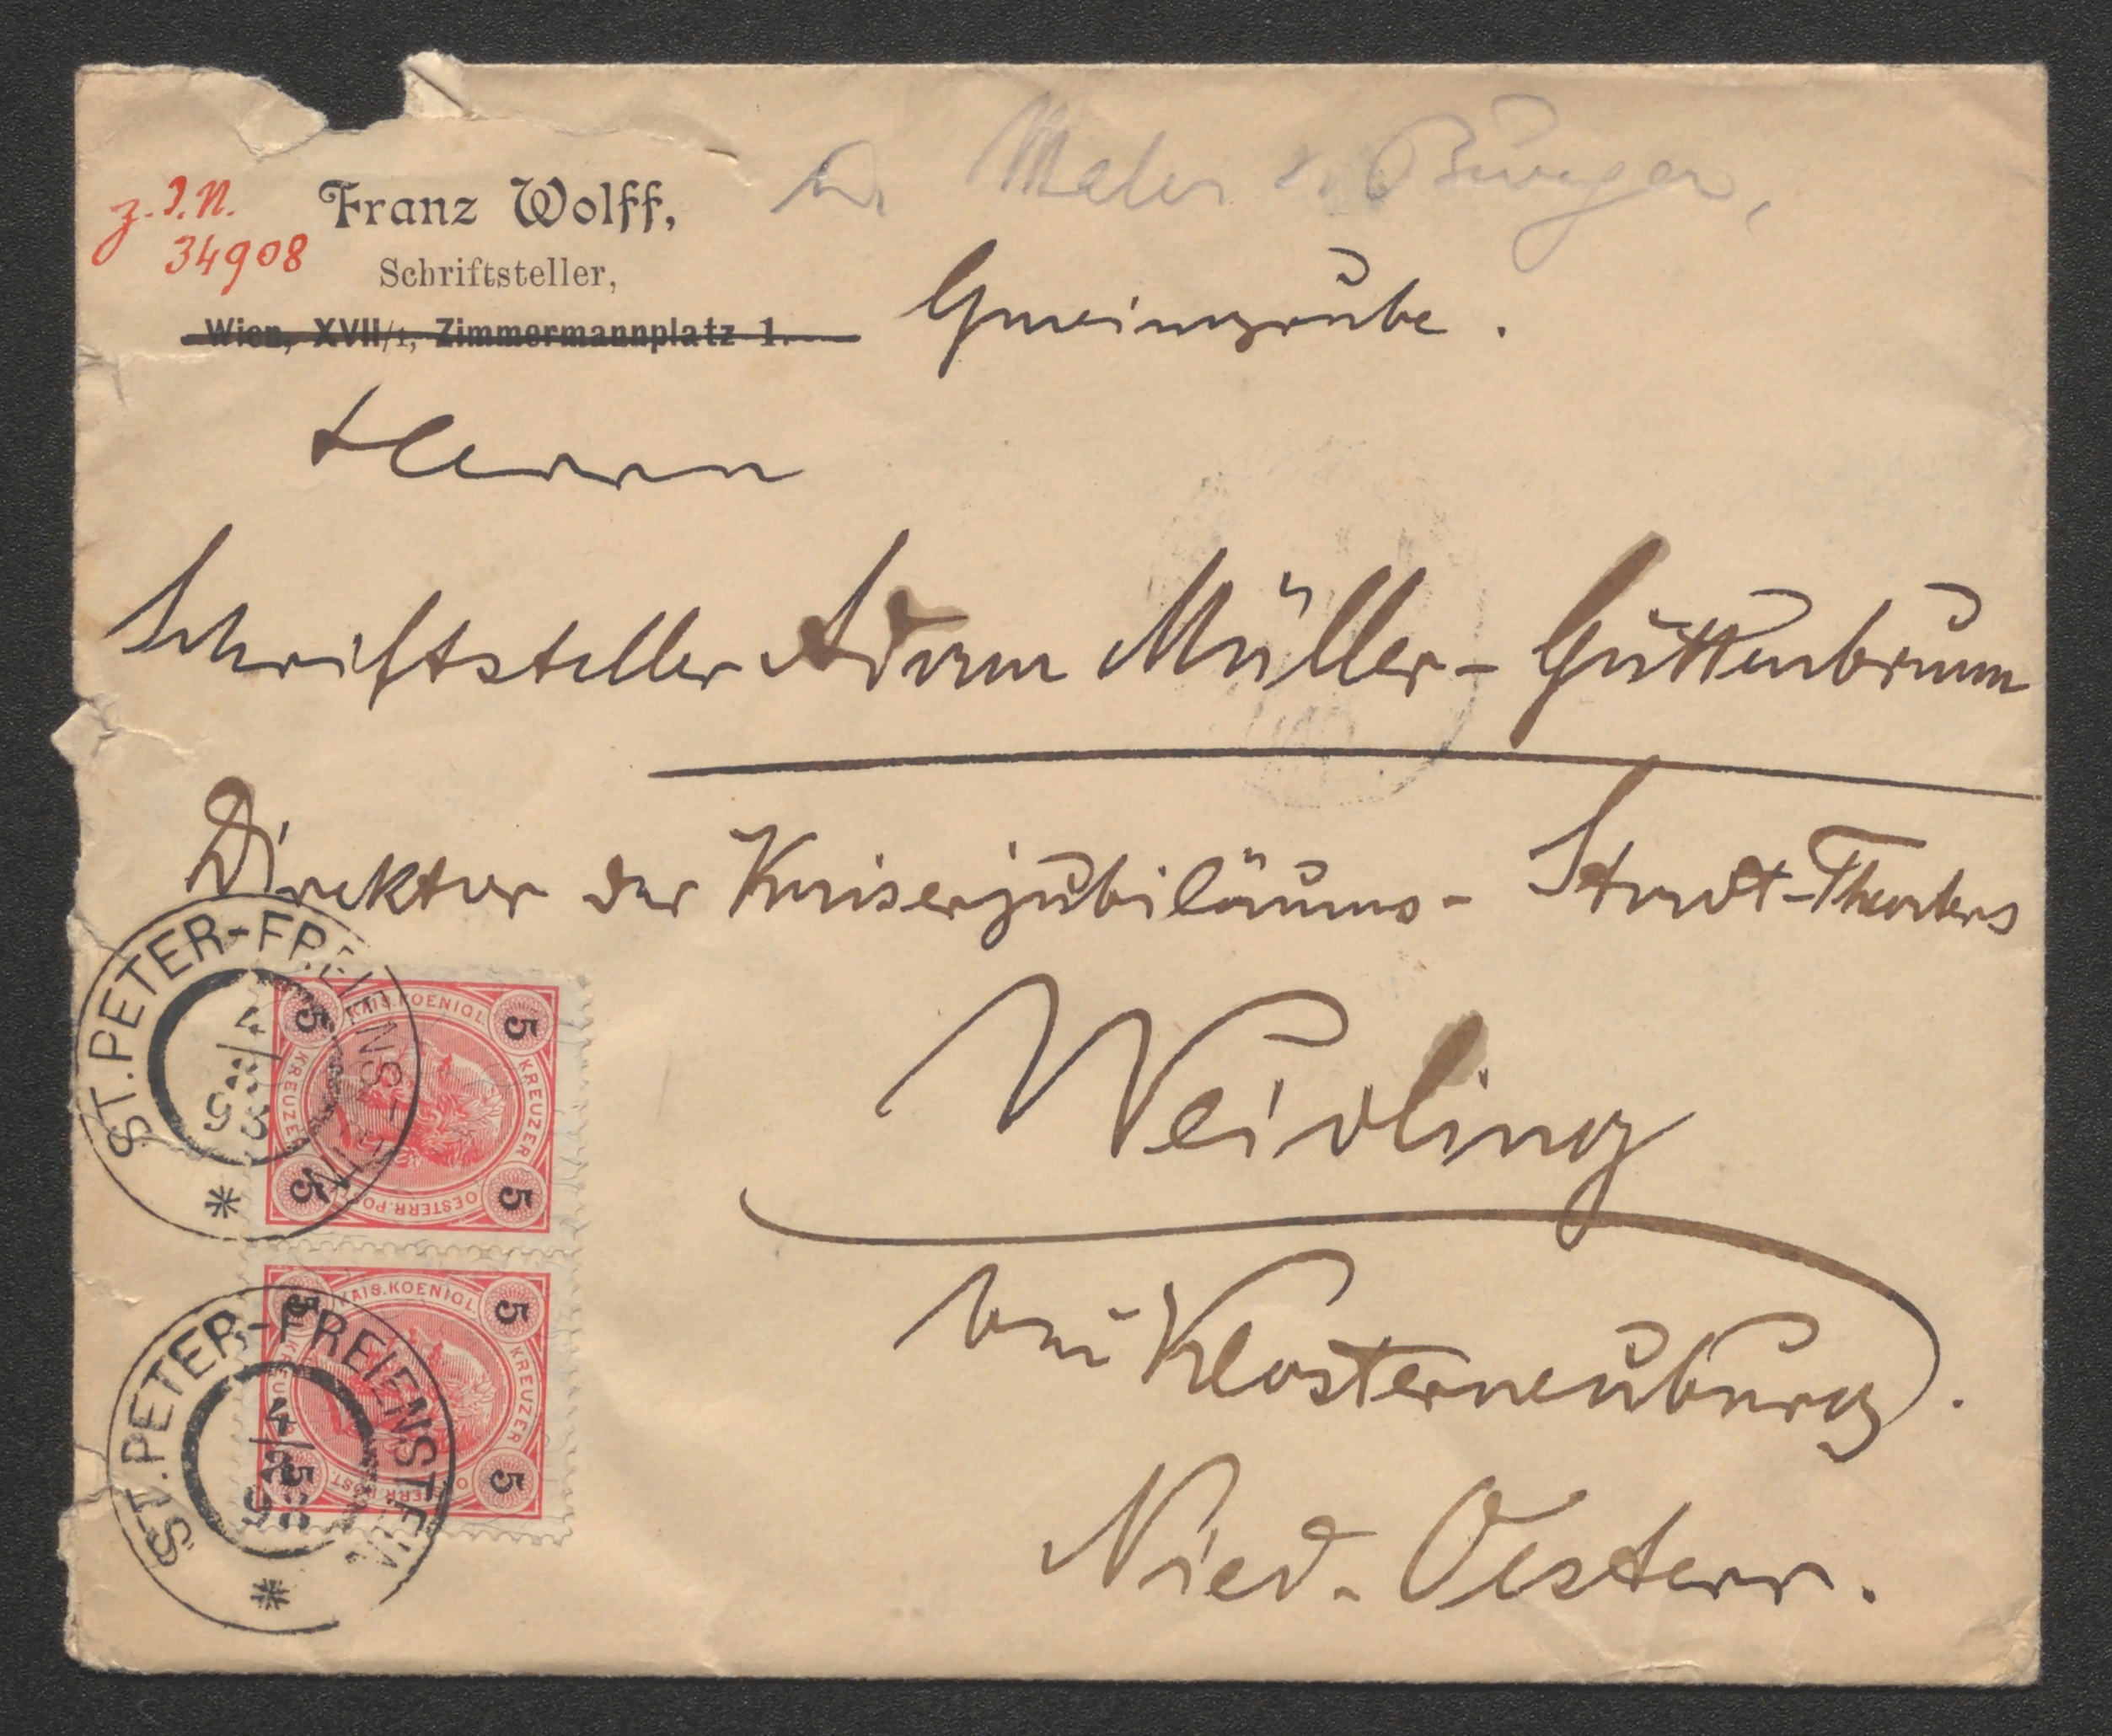 z. I. N.
34908
Franz Wolff,
Schriftsteller,
Wien, XVII/1, Zimmermannplatz 1.
Gmeingrube.
Herrn
Schriftsteller Adam Müller-Guttenbrunn
Direktor des Kaiserjubiläums-Stadt-Theaters
Weidling
bei Klosterneuburg.
Nied.-Oesterr.
ST.PETER-FREIENSTEIN
KAIS.KOENIGL.
5 5
KREUZER KREUZER
5 5
OESTERR.POST
ST.PETER-FREIENSTEIN
4
98
KAIS.KOENIGL.
5 5
KREUZER KREUZER
5 5
OESTERR.POST